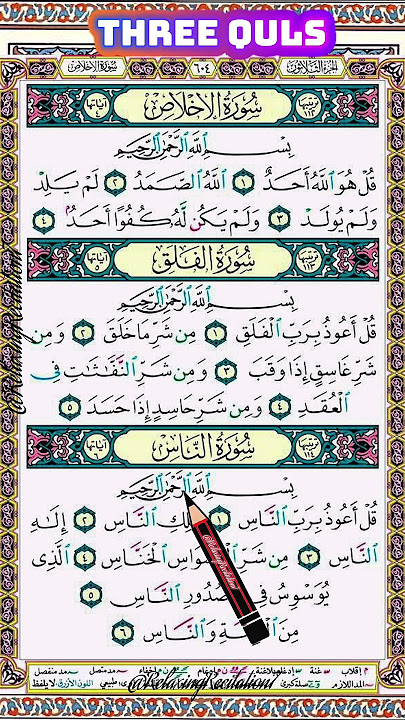 THREE QULS
الجزء الثلاثون ٦٠٤ سورة الإخلاص
ترتيبها ١١٢ سُورَةُ الإِخْلَاصِ آياتها ٤
بِسْمِ ٱللَّهِ ٱلرَّحْمَٰنِ ٱلرَّحِيمِ
قُلْ هُوَ ٱللَّهُ أَحَدٌ ١ ٱللَّهُ ٱلصَّمَدُ ٢ لَمْ يَلِدْ
وَلَمْ يُولَدْ ٣ وَلَمْ يَكُن لَّهُۥ كُفُوًا أَحَدٌۢ ٤
ترتيبها ١١٣ سُورَةُ الفَلَقِ آياتها ٥
بِسْمِ ٱللَّهِ ٱلرَّحْمَٰنِ ٱلرَّحِيمِ
قُلْ أَعُوذُ بِرَبِّ ٱلْفَلَقِ ١ مِن شَرِّ مَا خَلَقَ ٢ وَمِن
شَرِّ غَاسِقٍ إِذَا وَقَبَ ٣ وَمِن شَرِّ ٱلنَّفَّٰثَٰتِ فِى
ٱلْعُقَدِ ٤ وَمِن شَرِّ حَاسِدٍ إِذَا حَسَدَ ٥
ترتيبها ١١٤ سُورَةُ النَّاسِ آياتها ٦
بِسْمِ ٱللَّهِ ٱلرَّحْمَٰنِ ٱلرَّحِيمِ
قُلْ أَعُوذُ بِرَبِّ ٱلنَّاسِ ١ ٱلنَّاسِ ٢ إِلَٰهِ
ٱلنَّاسِ ٣ مِن شَرِّ ٱلْخَنَّاسِ ٤ ٱلَّذِى
يُوَسْوِسُ فِى صُدُورِ ٱلنَّاسِ ٥
مِنَ وَٱلنَّاسِ ٦
@RelaxingRecitation1
@RelaxingRecitation1
@RelaxingRecitation1